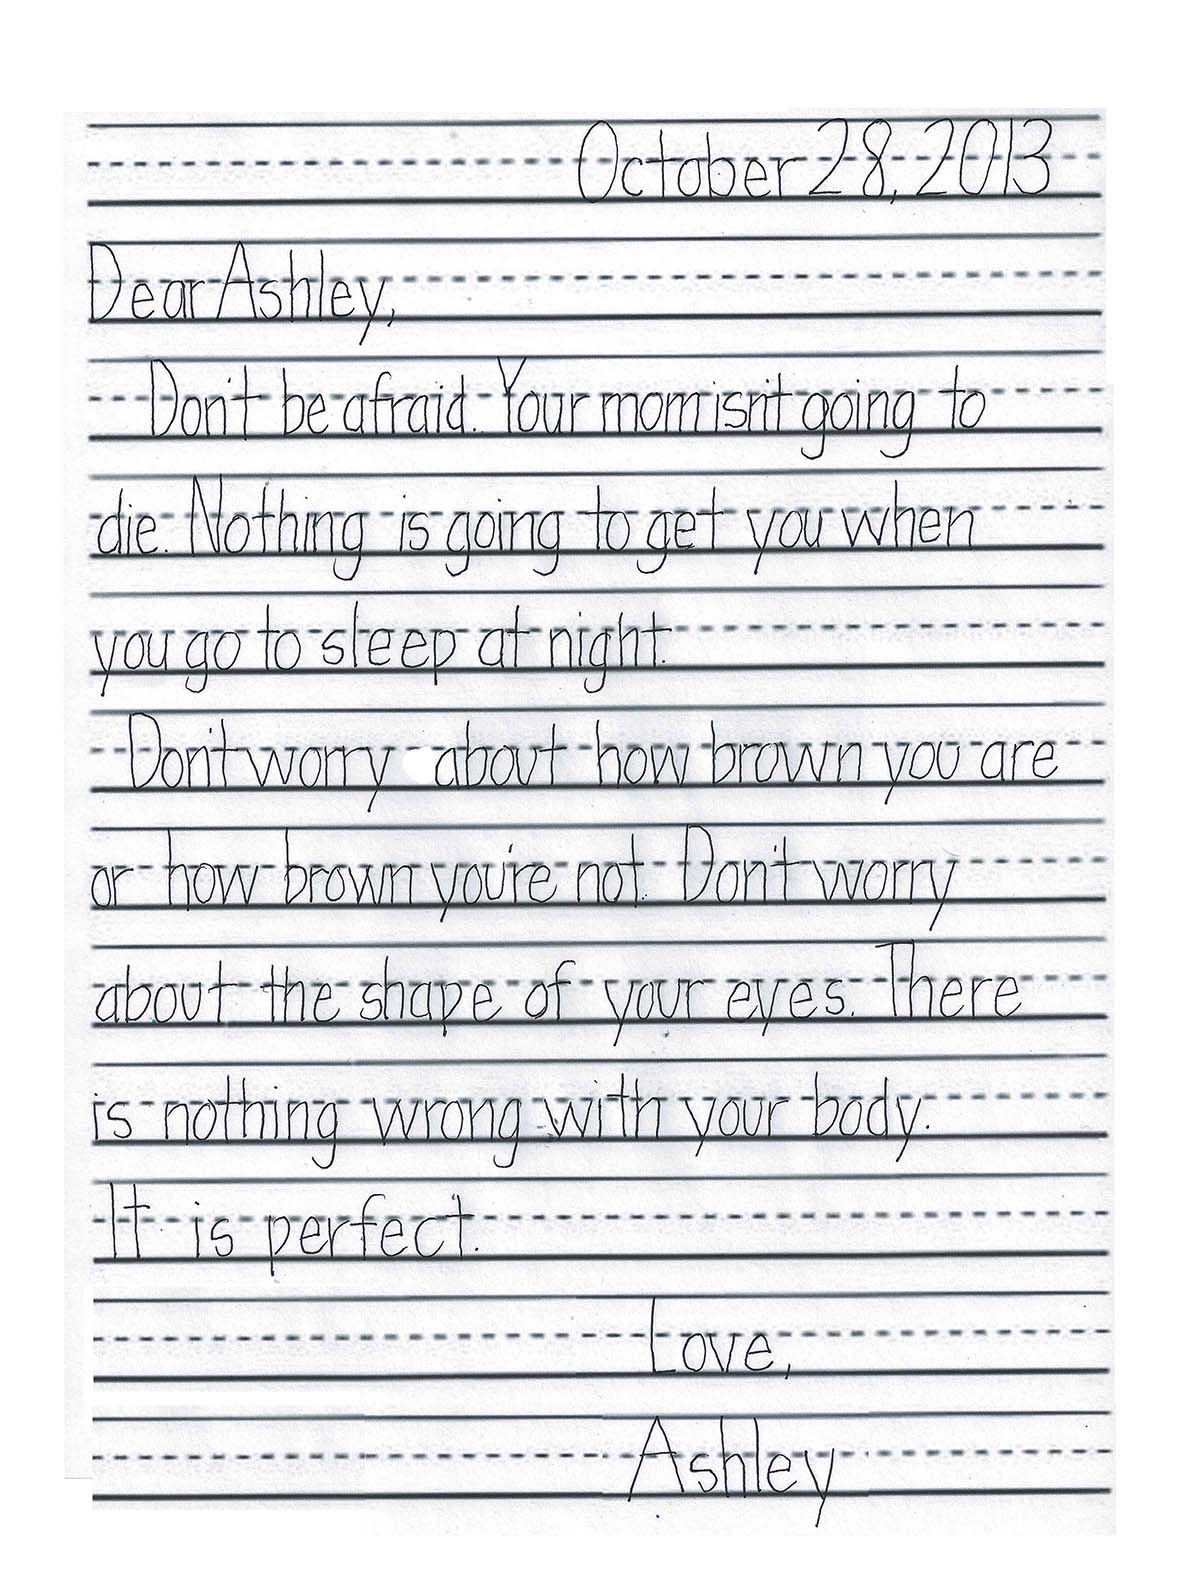 October 28, 2013
Dear Ashley,
Don't be afraid. Your mom isn't going to
die. Nothing is going to get you when
you go to sleep at night.
Don't worry about how brown you are
or how brown you're not. Don't worry
about the shape of your eyes. There
is nothing wrong with your body.
It is perfect.
Love,
Ashley